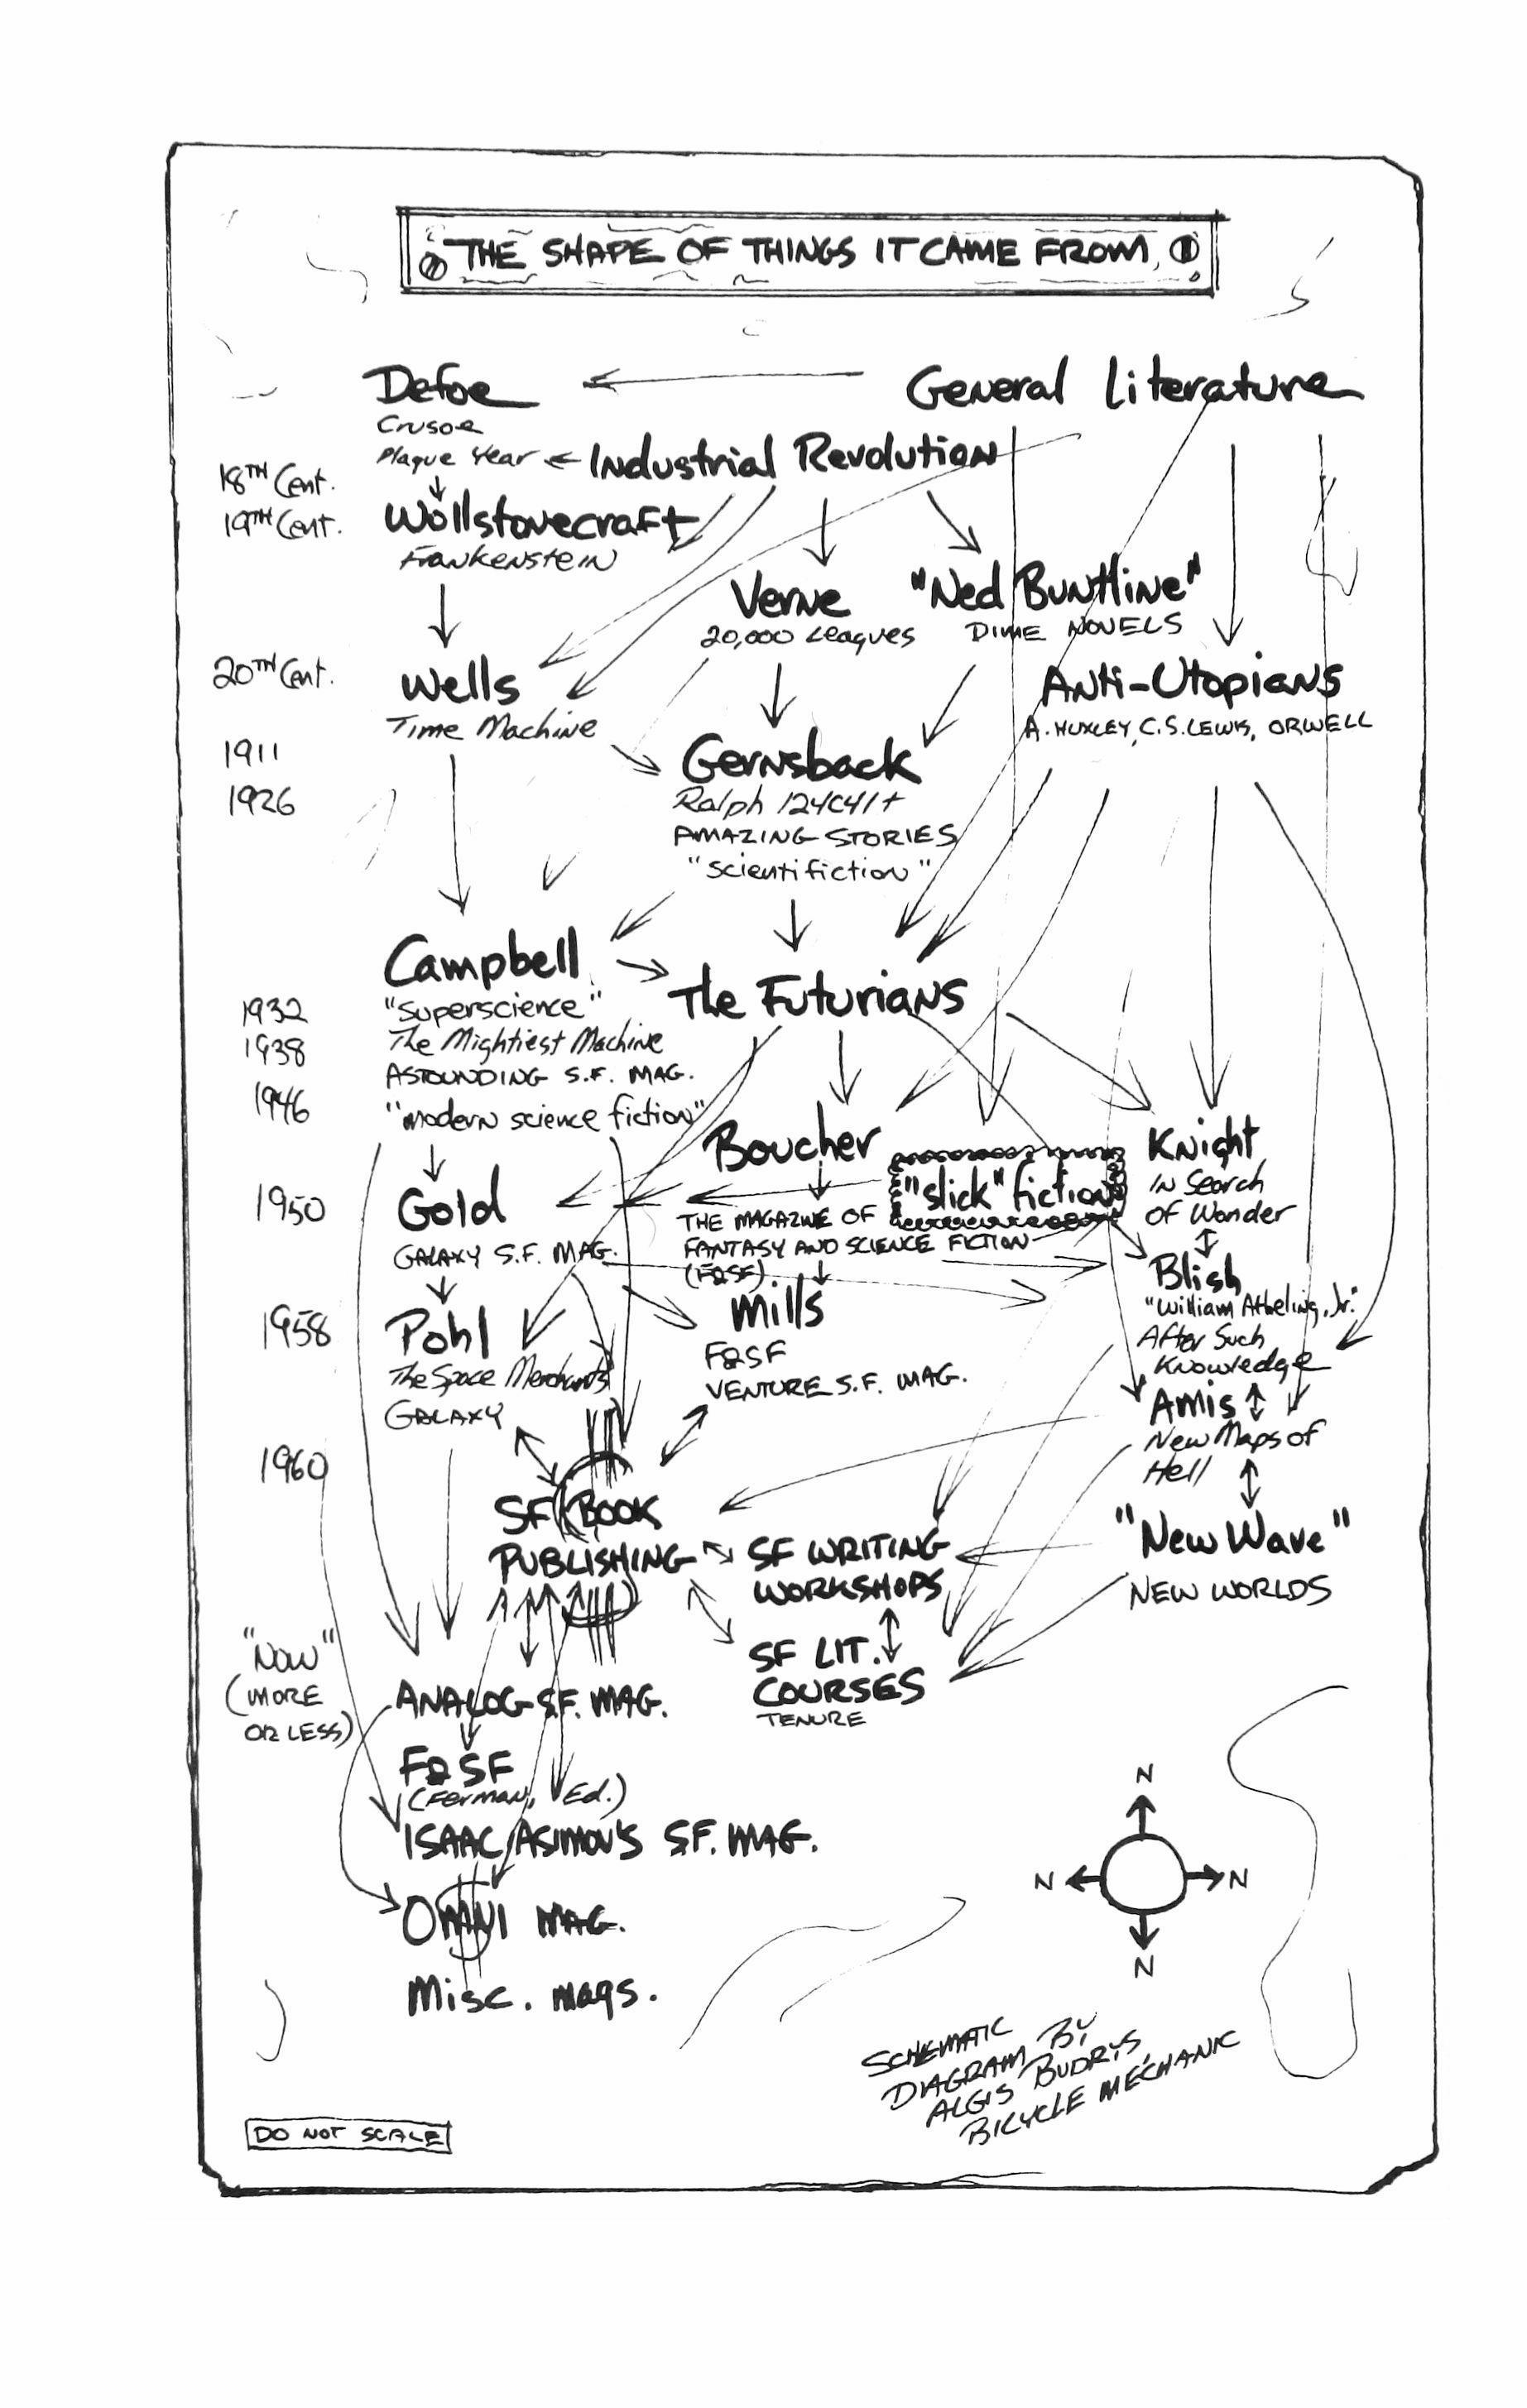 THE SHAPE OF THINGS IT CAME FROM
Defoe
General Literature
Crusoe
Plague Year
Industrial Revolution
18TH Cent.
19TH Cent.
Wollstonecraft
Frankenstein
Verne
20,000 Leagues
"Ned Buntline"
DIME NOVELS
20TH Cent.
Wells
Time Machine
Anti-Utopians
A. HUXLEY, C.S. LEWIS, ORWELL
1911
1926
Gernsback
Ralph 124C41+
AMAZING STORIES
"scientifiction"
Campbell
"Superscience"
The Mightiest Machine
ASTOUNDING S.F. MAG.
"modern science fiction"
1932
1938
1946
The Futurians
Boucher
THE MAGAZINE OF
FANTASY AND SCIENCE FICTION
(F&SF)
"slick" fiction
Knight
In Search
of Wonder
1950
Gold
GALAXY S.F. MAG.
Blish
"William Atheling, Jr."
After Such
Knowledge
1958
Pohl
The Space Merchants
GALAXY
Mills
F&SF
VENTURE S.F. MAG.
Amis
New Maps of
Hell
1960
SF BOOK
PUBLISHING
SF WRITING
WORKSHOPS
"New Wave"
NEW WORLDS
SF LIT.
COURSES
TENURE
"NOW"
(MORE
OR LESS)
ANALOG S.F. MAG.
F&SF
(Ferman, Ed.)
ISAAC ASIMOV'S S.F. MAG.
OMNI MAG.
Misc. mags.
N
N
N
N
SCHEMATIC
DIAGRAM BY
ALGIS BUDRYS,
BICYCLE MECHANIC
DO NOT SCALE